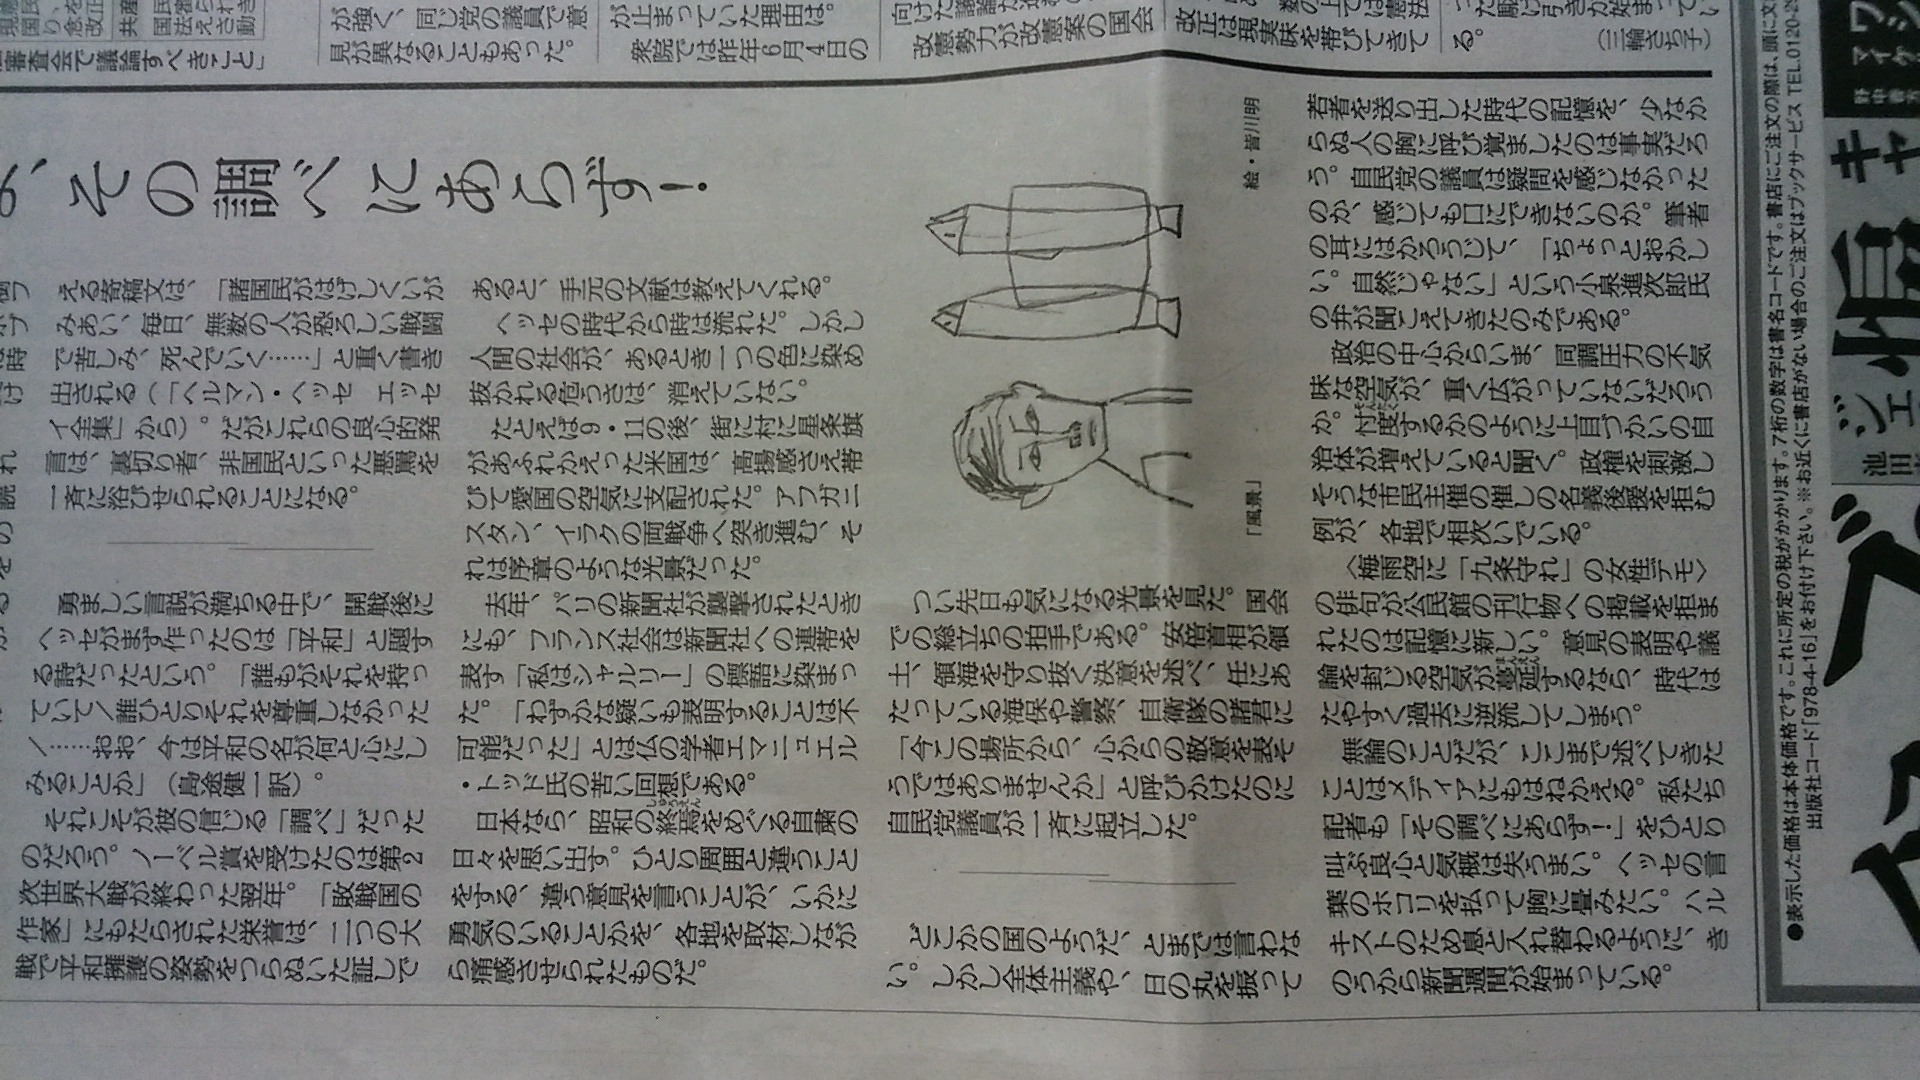 共産
国民
国法
審査会で議論すべきこと」
が強く、同じ党の議員で意
見が異なることもあった。
が止まっていた理由は。
衆院では昨年6月4日の
改憲勢力が改憲案の国会
改正は現実味を帯びてきて
る。
(三輪さち子)
、その調べにあらず!
える寄稿文は、「諸国民がはげしくいが
みあい、毎日、無数の人が恐ろしい戦闘
で苦しみ、死んでいく……」と重く書き
出される(「ヘルマン・ヘッセ エッセ
イ全集」から)。だがこれらの良心的発
言は、裏切り者、非国民といった悪罵を
一斉に浴びせられることになる。
勇ましい言説が満ちる中で、開戦後に
ヘッセがまず作ったのは「平和」と題す
る詩だったという。「誰もがそれを持っ
ていて/誰ひとりそれを尊重しなかった
/……おお、今は平和の名が何と心にし
みることか」(島途健一訳)。
それこそが彼の信じる「調べ」だった
のだろう。ノーベル賞を受けたのは第2
次世界大戦が終わった翌年。「敗戦国の
作家」にもたらされた栄誉は、二つの大
戦で平和擁護の姿勢をつらぬいた証しで
あると、手元の文献は教えてくれる。
ヘッセの時代から時は流れた。しかし
人間の社会が、あるとき一つの色に染め
抜かれる危うさは、消えていない。
たとえば9・11の後、街に村に星条旗
があふれかえった米国は、高揚感さえ帯
びて愛国の空気に支配された。アフガニ
スタン、イラクの両戦争へ突き進む、そ
れは序章のような光景だった。
去年、パリの新聞社が襲撃されたとき
にも、フランス社会は新聞社への連帯を
表す「私はシャルリー」の標語に染まっ
た。「わずかな疑いも表明することは不
可能だった」とは仏の学者エマニュエル
・トッド氏の苦い回想である。
日本なら、昭和の終焉(しゅうえん)をめぐる自粛の
日々を思い出す。ひとり周囲と違うこと
をする、違う意見を言うことが、いかに
勇気のいることかを、各地を取材しなが
ら痛感させられたものだ。
絵・皆川明
「風景」
つい先日も気になる光景を見た。国会
での総立ちの拍手である。安倍首相が領
土、領海を守り抜く決意を述べ、任にあ
たっている海保や警察、自衛隊の諸君に
「今この場所から、心からの敬意を表そ
うではありませんか」と呼びかけたのに
自民党議員が一斉に起立した。
どこかの国のようだ、とまでは言わな
い。しかし全体主義や、日の丸を振って
若者を送り出した時代の記憶を、少なか
らぬ人の胸に呼び覚ましたのは事実だろ
う。自民党の議員は疑問を感じなかった
のか、感じても口にできないのか。筆者
の耳にはかろうじて、「ちょっとおかし
い。自然じゃない」という小泉進次郎氏
の弁が聞こえてきたのみである。
政治の中心からいま、同調圧力の不気
味な空気が、重く広がっていないだろう
か。忖度(そんたく)するかのように上目づかいの自
治体が増えていると聞く。政権を刺激し
そうな市民主催の催しの名義後援を拒む
例が、各地で相次いでいる。
〈梅雨空に「九条守れ」の女性デモ〉
の俳句が公民館の刊行物への掲載を拒ま
れたのは記憶に新しい。意見の表明や議
論を封じる空気が蔓延(まんえん)するなら、時代は
たやすく過去に逆流してしまう。
無論のことだが、ここまで述べてきた
ことはメディアにもはねかえる。私たち
記者も「その調べにあらず!」をひとり
叫ぶ良心と気概は失うまい。ヘッセの言
葉のホコリを払って胸に畳みたい。ハル
キストのため息と入れ替わるように、き
のうから新聞週間が始まっている。
●表示した価格は本体価格です。これに所定の税がかかります。7桁の数字は書名コードです。書店にご注文の際は、頭に
出版社コード「978-4-16」をお付け下さい。※お近くに書店がない場合のご注文はブックサービス TEL.0120-2
マイケ
池田
ジェ
キャ